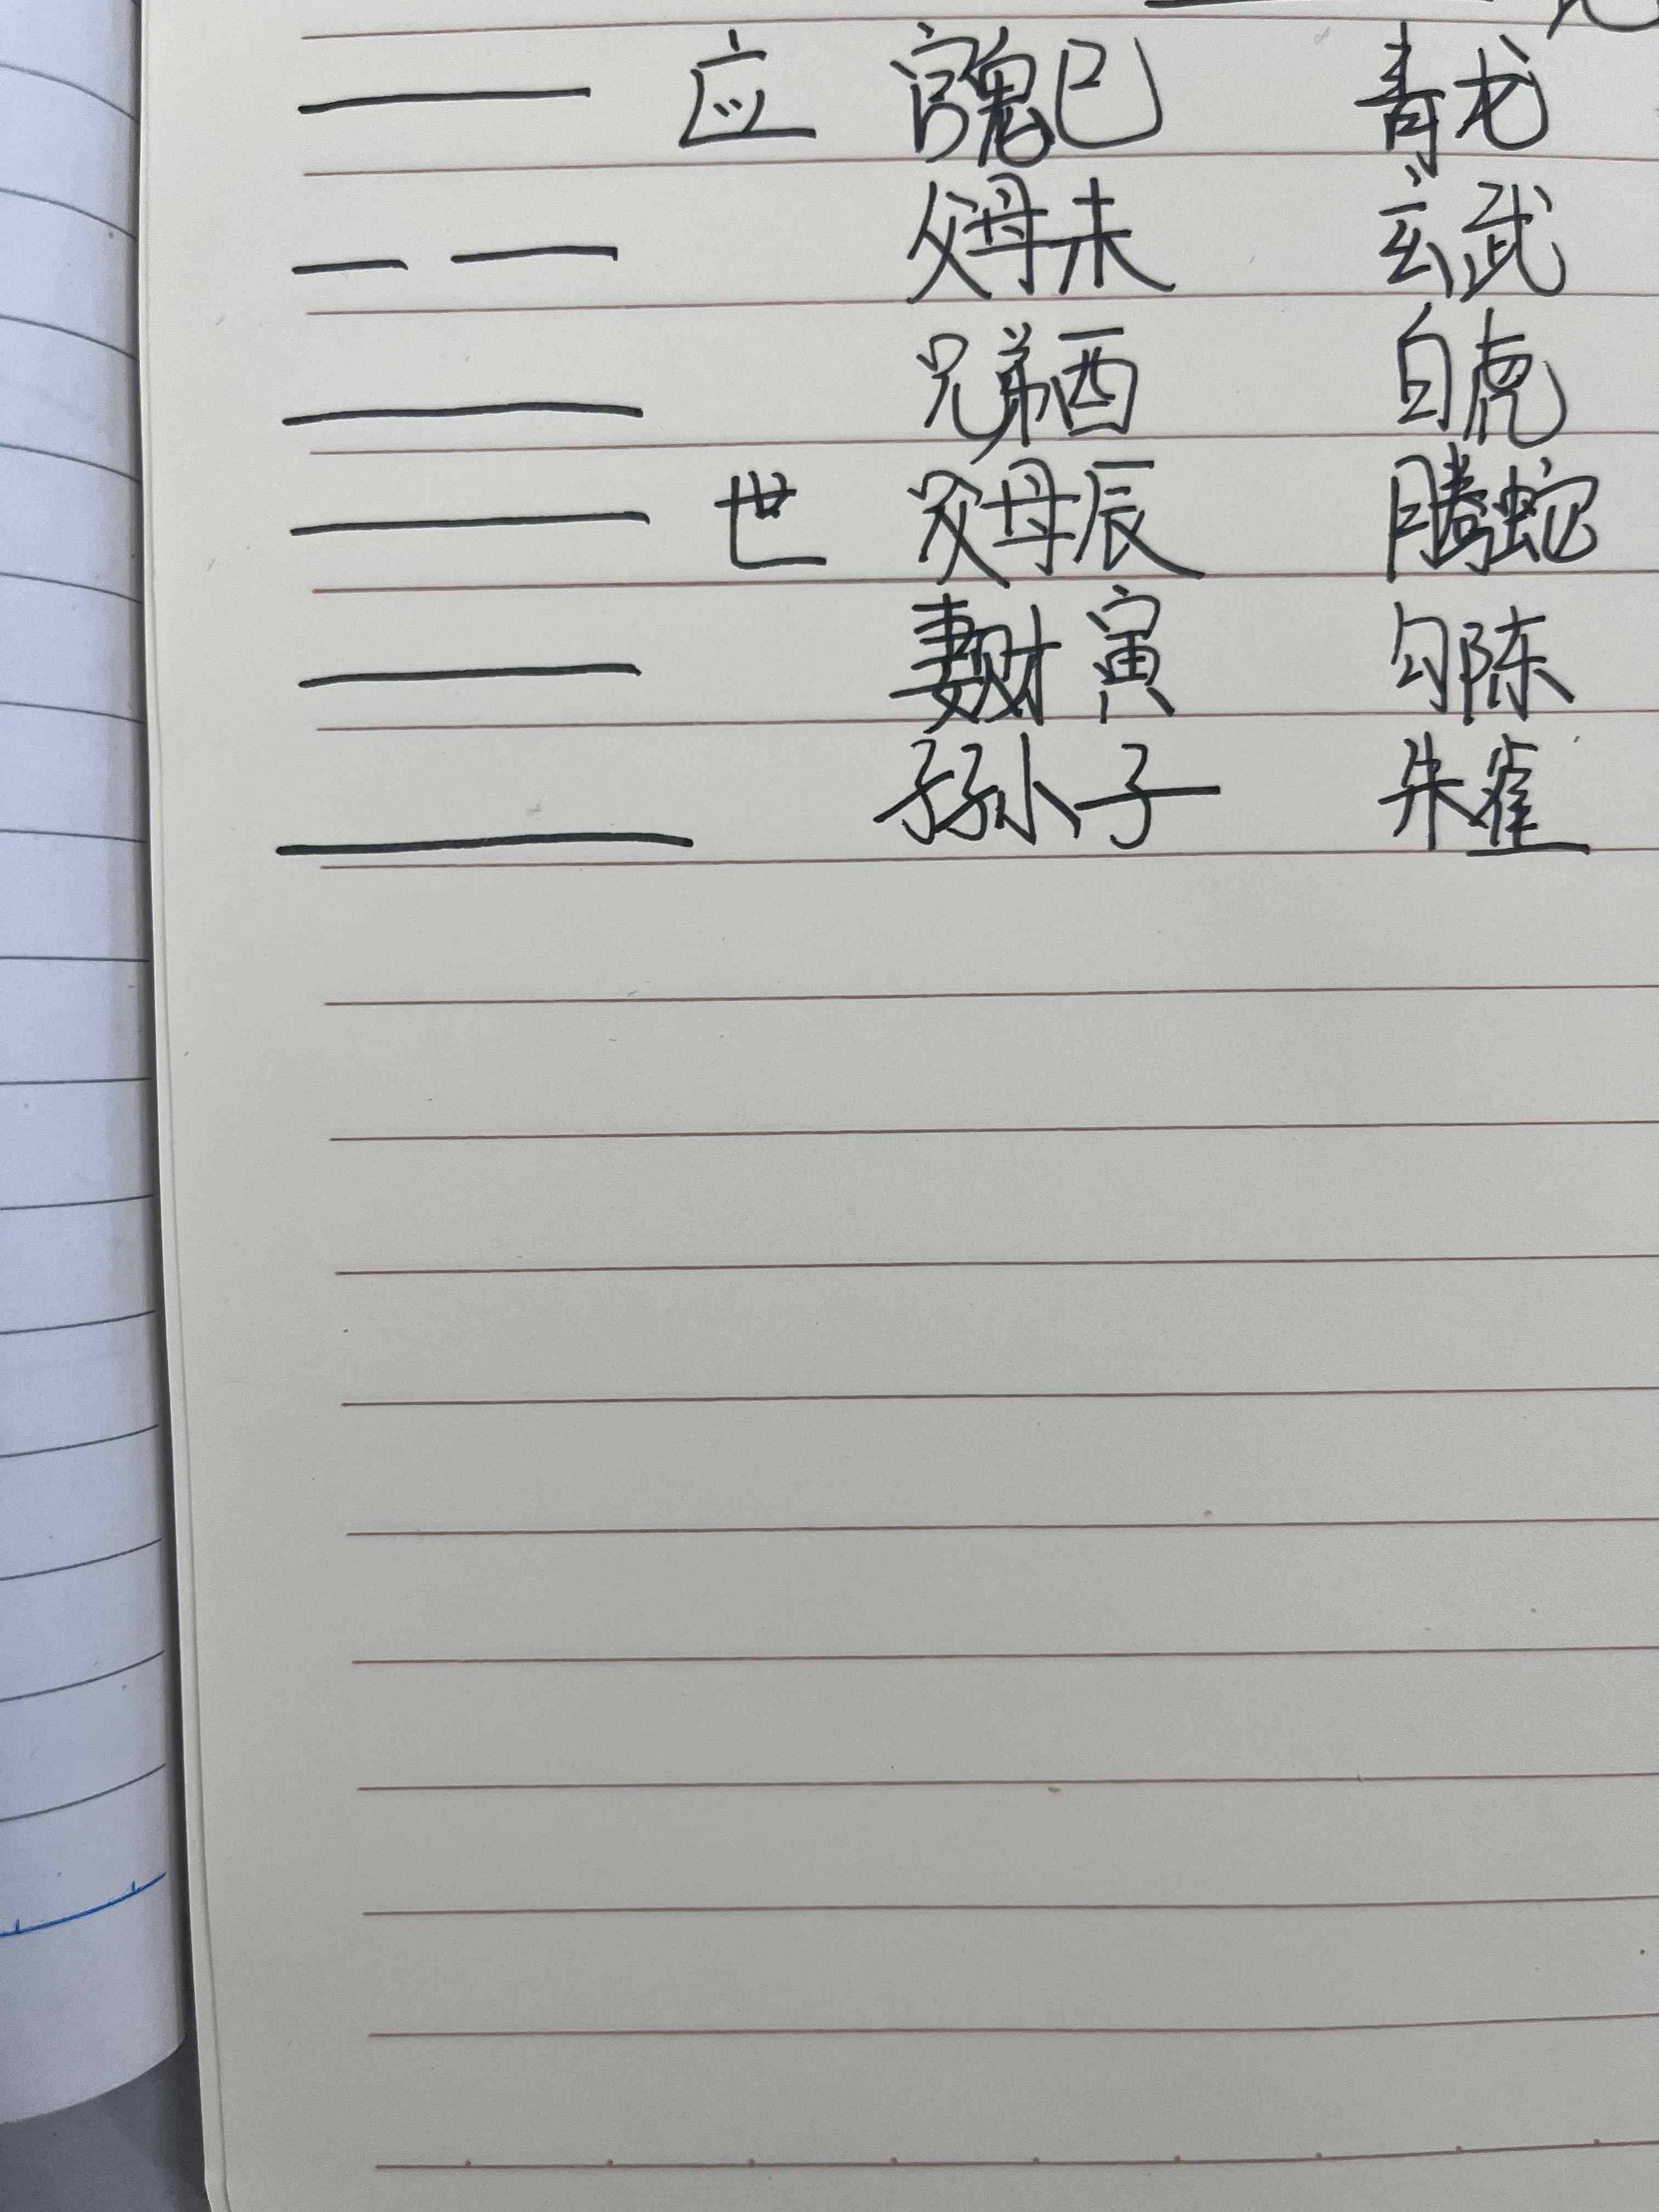 应 官鬼巳 青龙
父母未 玄武
兄弟酉 白虎
世 父母辰 腾蛇
妻财寅 勾陈
子孙子 朱雀